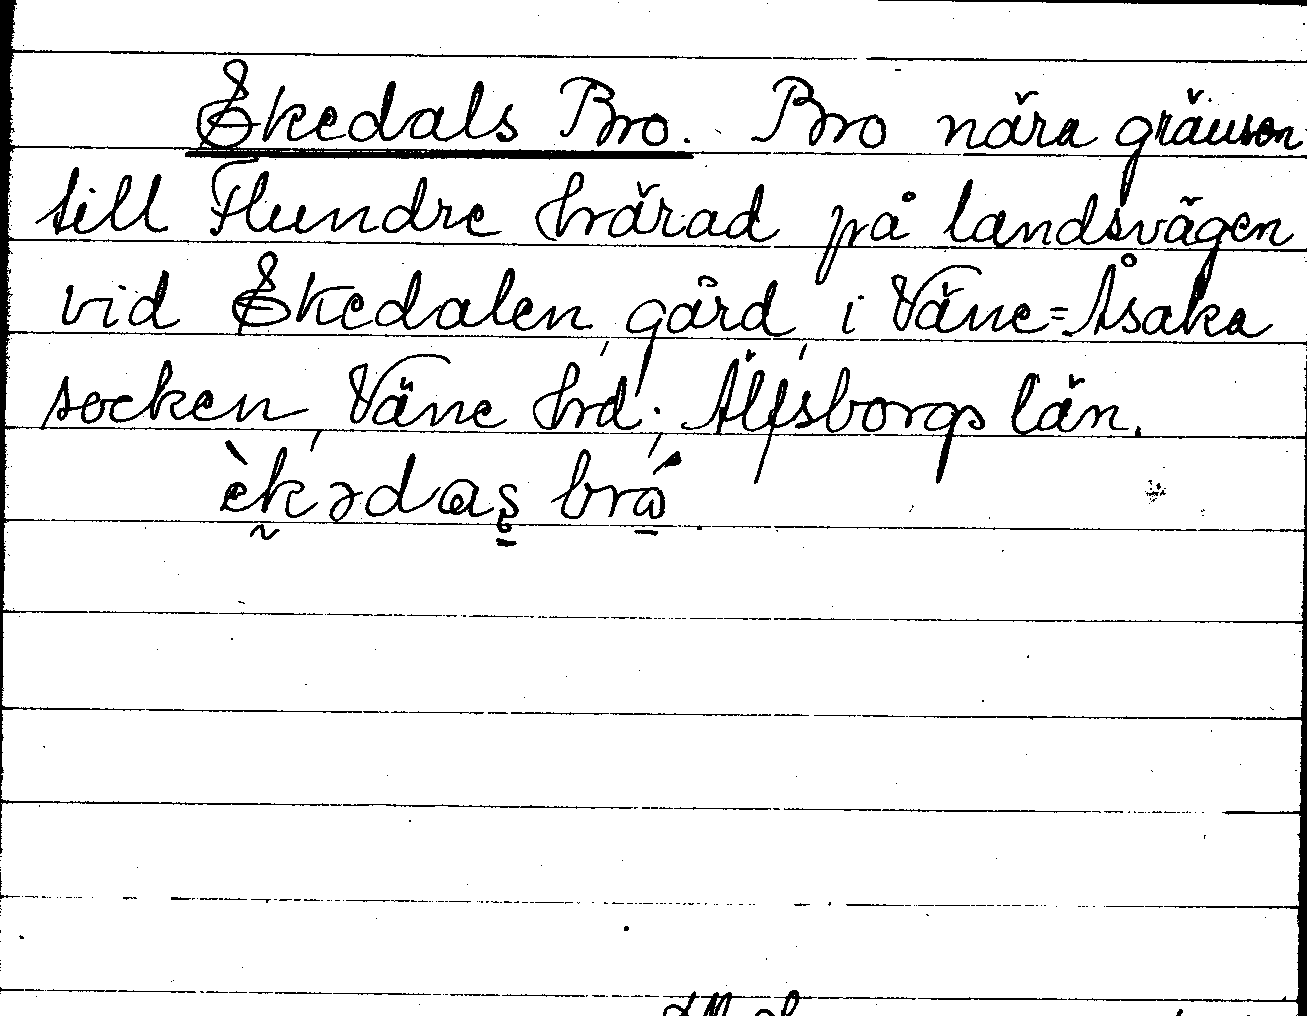 Ekedals Bro. Bro nära gränsen
till Flundre härad på landsvägen
vid Ekedalen, gård, i Väne=Åsaka
socken, Väne hrd, Älfsborgs län.